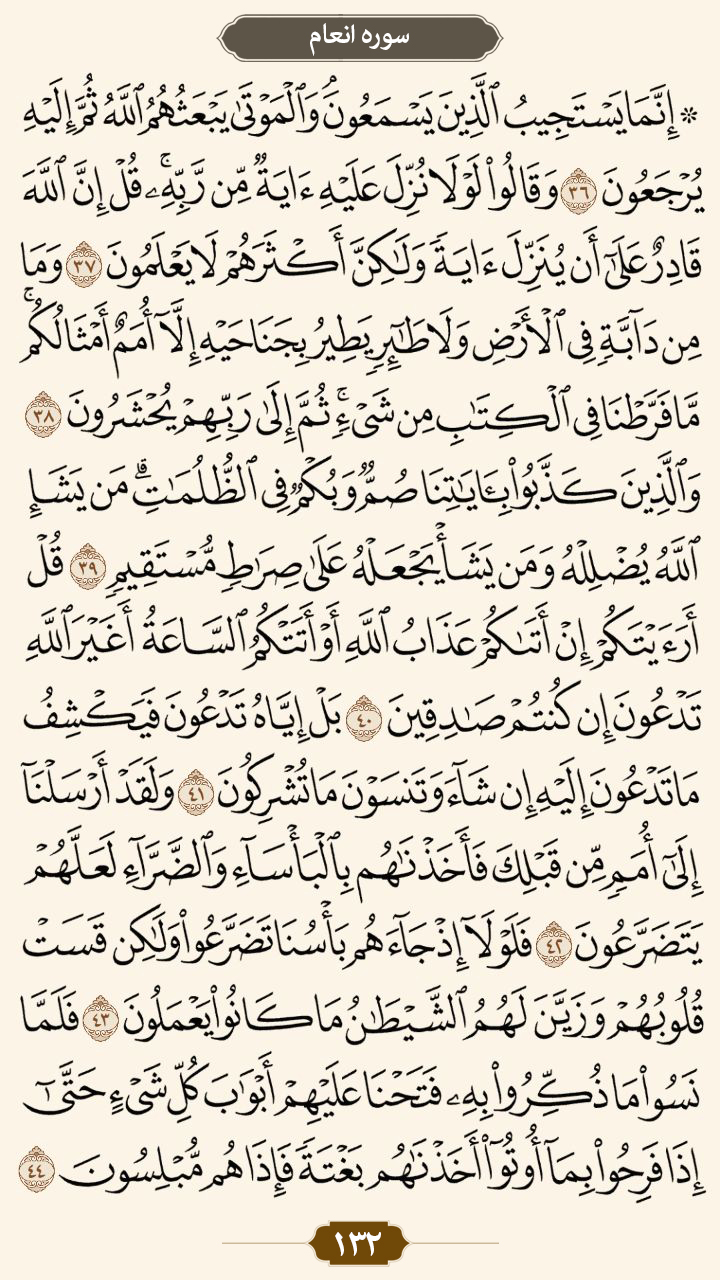 سوره انعام
۞ إِنَّمَا يَسْتَجِيبُ ٱلَّذِينَ يَسْمَعُونَۘ وَٱلْمَوْتَىٰ يَبْعَثُهُمُ ٱللَّهُ ثُمَّ إِلَيْهِ
يُرْجَعُونَ ٣٦ وَقَالُوا۟ لَوْلَا نُزِّلَ عَلَيْهِ ءَايَةٌ مِّن رَّبِّهِۦۚ قُلْ إِنَّ ٱللَّهَ
قَادِرٌ عَلَىٰٓ أَن يُنَزِّلَ ءَايَةً وَلَٰكِنَّ أَكْثَرَهُمْ لَا يَعْلَمُونَ ٣٧ وَمَا
مِن دَآبَّةٍ فِى ٱلْأَرْضِ وَلَا طَٰٓئِرٍ يَطِيرُ بِجَنَاحَيْهِ إِلَّآ أُمَمٌ أَمْثَالُكُمۚ
مَّا فَرَّطْنَا فِى ٱلْكِتَٰبِ مِن شَىْءٍۚ ثُمَّ إِلَىٰ رَبِّهِمْ يُحْشَرُونَ ٣٨
وَٱلَّذِينَ كَذَّبُوا۟ بِـَٔايَٰتِنَا صُمٌّ وَبُكْمٌ فِى ٱلظُّلُمَٰتِۗ مَن يَشَإِ
ٱللَّهُ يُضْلِلْهُ وَمَن يَشَأْ يَجْعَلْهُ عَلَىٰ صِرَٰطٍ مُّسْتَقِيمٍ ٣٩ قُلْ
أَرَءَيْتَكُمْ إِنْ أَتَىٰكُمْ عَذَابُ ٱللَّهِ أَوْ أَتَتْكُمُ ٱلسَّاعَةُ أَغَيْرَ ٱللَّهِ
تَدْعُونَ إِن كُنتُمْ صَٰدِقِينَ ٤٠ بَلْ إِيَّاهُ تَدْعُونَ فَيَكْشِفُ
مَا تَدْعُونَ إِلَيْهِ إِن شَآءَ وَتَنسَوْنَ مَا تُشْرِكُونَ ٤١ وَلَقَدْ أَرْسَلْنَآ
إِلَىٰٓ أُمَمٍ مِّن قَبْلِكَ فَأَخَذْنَٰهُم بِٱلْبَأْسَآءِ وَٱلضَّرَّآءِ لَعَلَّهُمْ
يَتَضَرَّعُونَ ٤٢ فَلَوْلَآ إِذْ جَآءَهُم بَأْسُنَا تَضَرَّعُوا۟ وَلَٰكِن قَسَتْ
قُلُوبُهُمْ وَزَيَّنَ لَهُمُ ٱلشَّيْطَٰنُ مَا كَانُوا۟ يَعْمَلُونَ ٤٣ فَلَمَّا
نَسُوا۟ مَا ذُكِّرُوا۟ بِهِۦ فَتَحْنَا عَلَيْهِمْ أَبْوَٰبَ كُلِّ شَىْءٍ حَتَّىٰٓ
إِذَا فَرِحُوا۟ بِمَآ أُوتُوٓا۟ أَخَذْنَٰهُم بَغْتَةً فَإِذَا هُم مُّبْلِسُونَ ٤٤
١٣٢